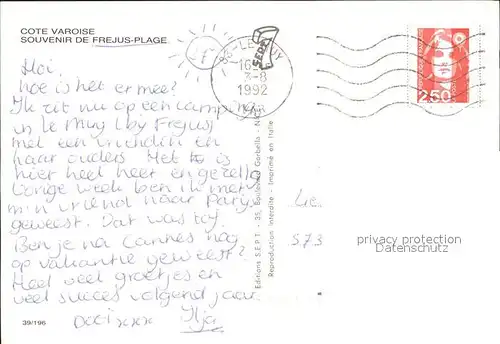 COTE VAROISE
SOUVENIR DE FREJUS-PLAGE
Hoi,
hoe is het er mee?
Ik zit nu op een camping
in Le Muy (bij Frejus)
met een vriendin en
haar ouders. Het is
hier heel heet en gezellig
Vorige week ben ik met
m'n vriend naar Parijs
geweest. Dat was tof.
Ben je na Cannes nog
op vakantie geweest?
Heel veel groetjes en
veel succes volgend jaar.
xxx Ilja
39/196
83-LE MUY
16
3-8
1992
2,50
Editions S.E.P.T - 35, Boulevard Gorbella - N
Reproduction interdite - Imprimé en Italie
573
privacy protection
www.Ansichtskarten-Center.de